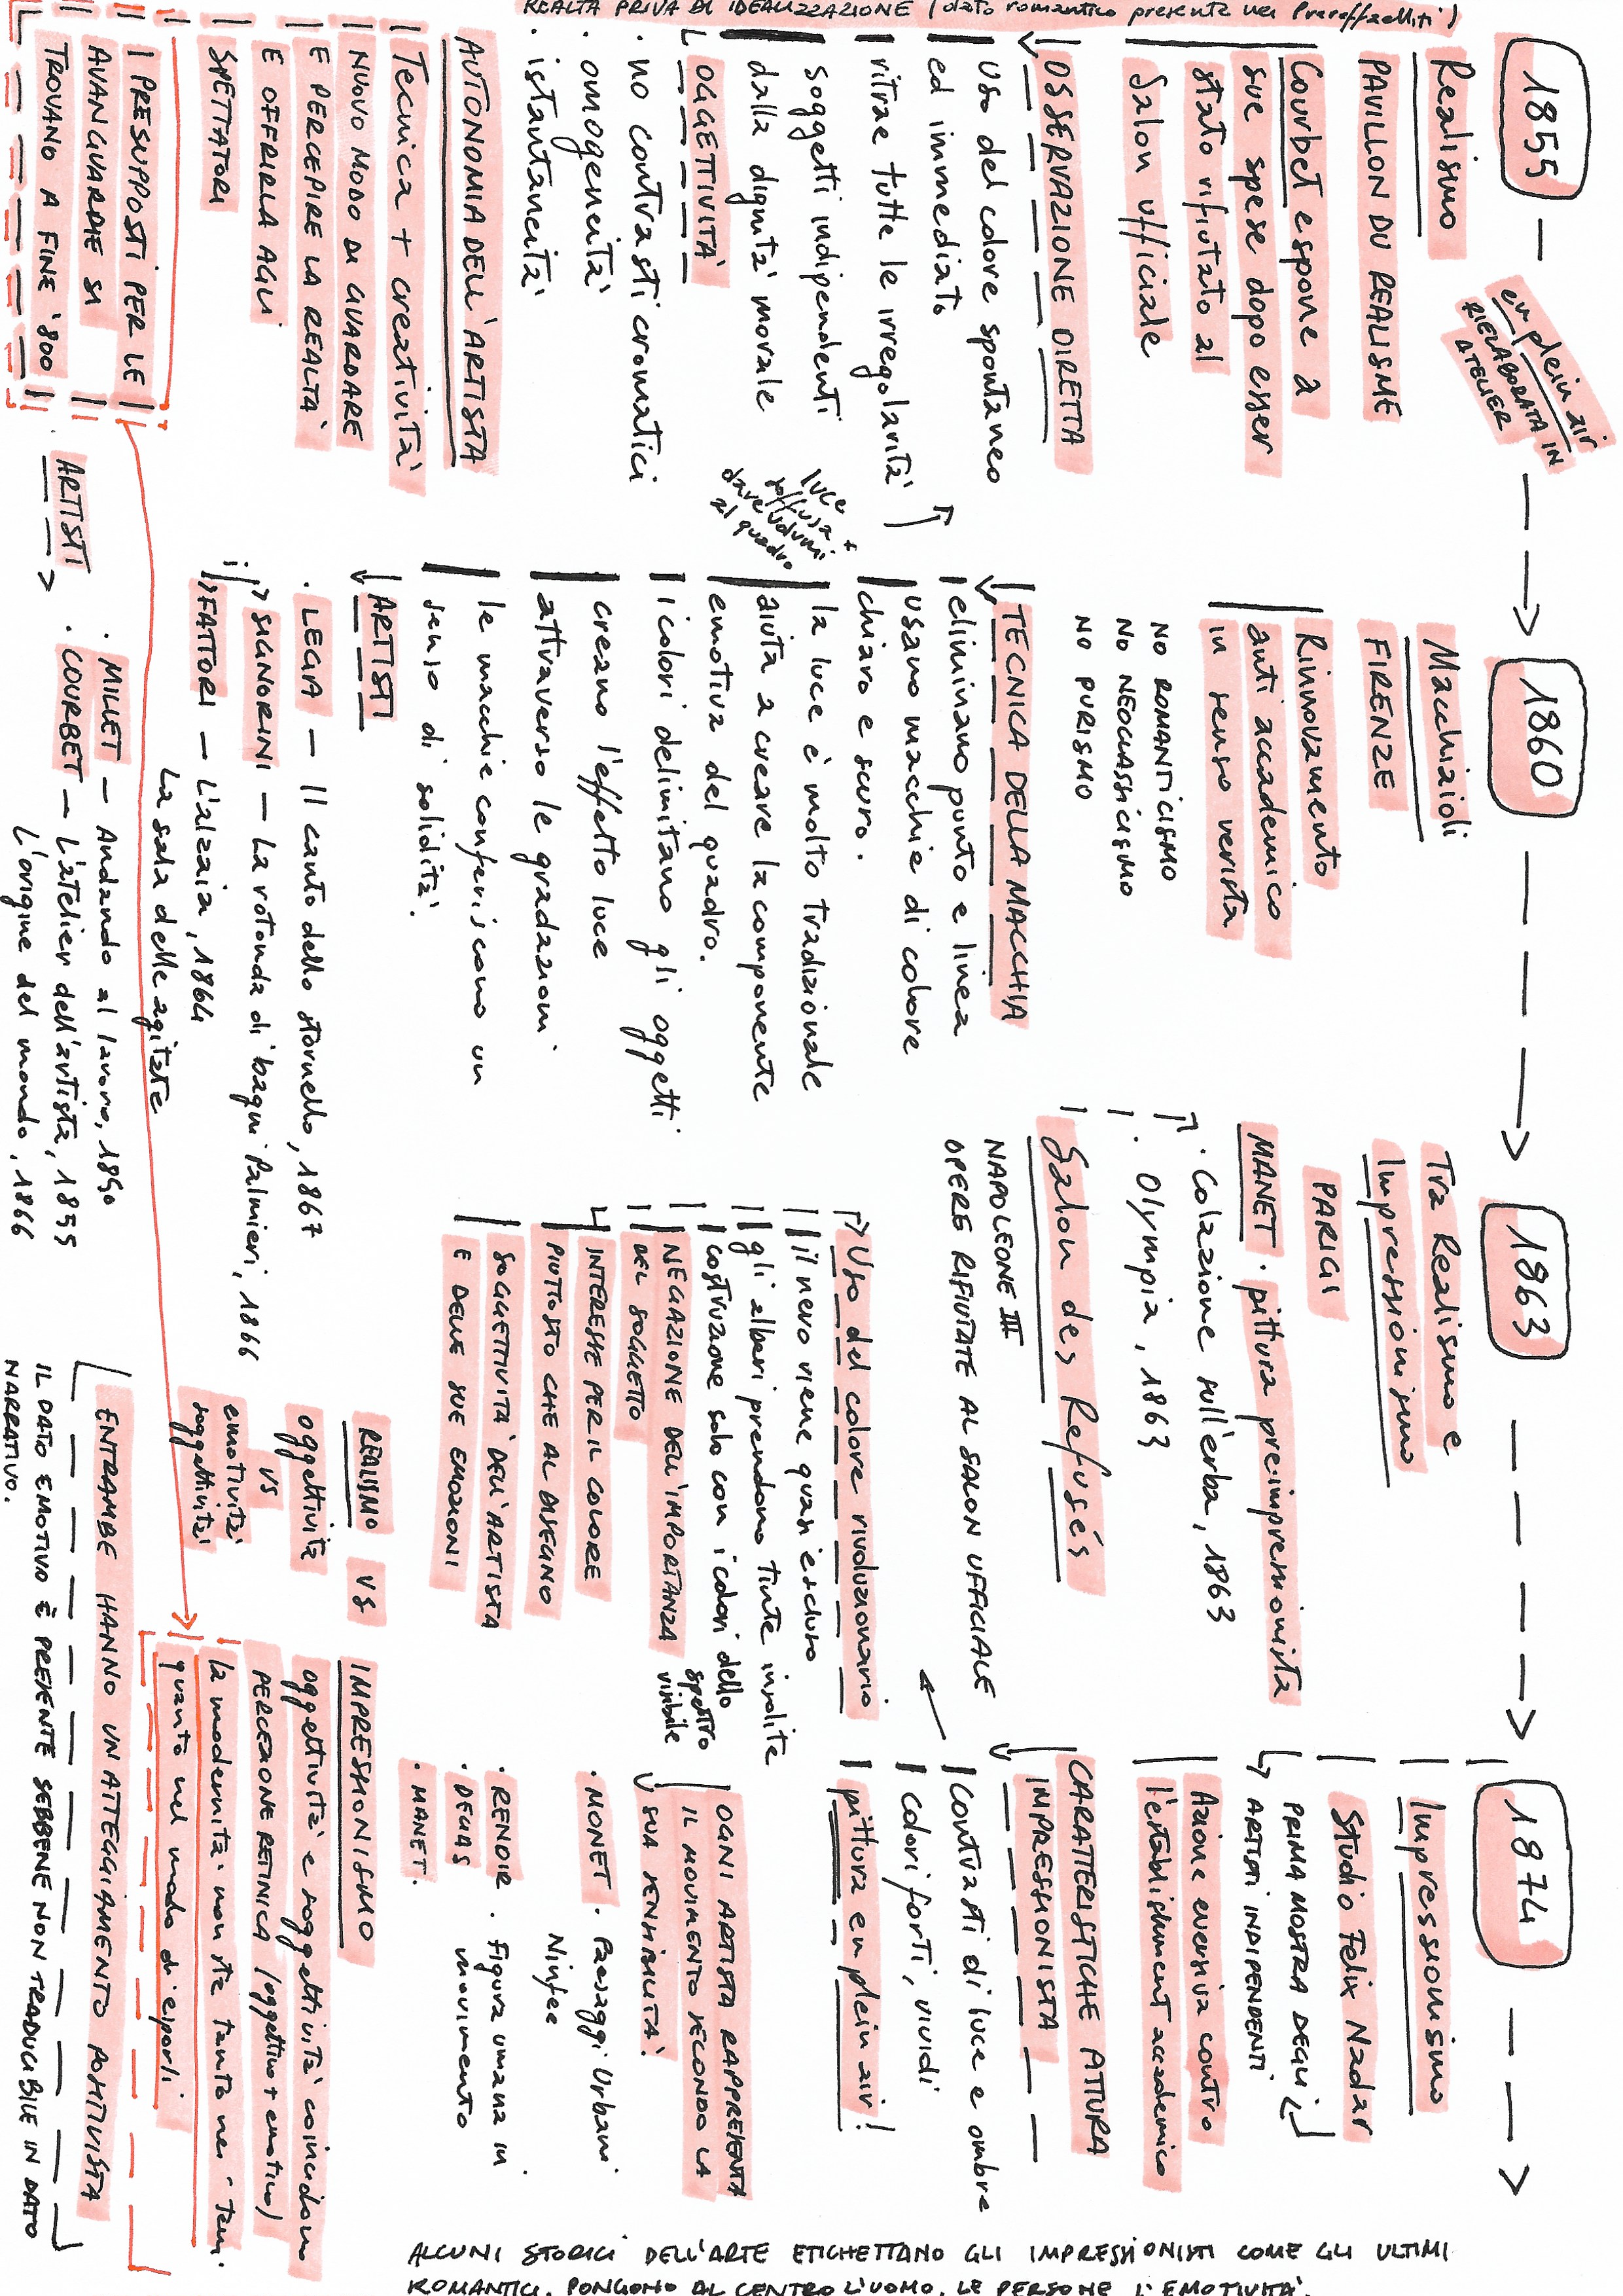 1855
en plein air
RIELABORATA IN
ATELIER
Realismo
PAVILLON DU REALISME
Courbet espone a
sue spese dopo esser
stato rifiutato al
Salon ufficiale
OSSERVAZIONE DIRETTA
uso del colore spontaneo
ed immediato
ritrae tutte le irregolarità
soggetti indipendenti
dalla dignità morale
OGGETTIVITÀ
· no contrasti cromatici
· omogeneità
· istantaneità
AUTONOMIA DELL'ARTISTA
Tecnica + creatività
NUOVO MODO DI GUARDARE
E PERCEPIRE LA REALTÀ
E OFFRIRLA AGLI
SPETTATORI
I PRESUPPOSTI PER LE
AVANGUARDIE SI
TROVANO A FINE '800
REALTÀ PRIVA DI IDEALIZZAZIONE (dato romantico presente nei Preraffaelliti)
1860
Macchiaioli
FIRENZE
Rinnovamento
anti accademico
in senso verista
NO ROMANTICISMO
NO NEOCLASSICISMO
NO PURISMO
TECNICA DELLA MACCHIA
eliminano punto e linea
usano macchie di colore
chiaro e scuro.
la luce è molto tradizionale
aiuta a creare la componente
emotiva del quadro.
luce
soffusa +
dare volumi
al quadro
i colori delimitano gli oggetti
creano l'effetto luce
attraverso le gradazioni
le macchie conferiscono un
senso di solidità.
ARTISTI
· LEGA — Il canto dello stornello, 1867
SIGNORINI — La rotonda di bagni Palmieri, 1866
FATTORI — L'alzaia, 1864
La sala delle agitate
ARTISTI
· MILLET — Andando al lavoro, 1850
· COURBET — L'atelier dell'artista, 1855
L'origine del mondo, 1866
1863
Tra Realismo e
Impressionismo
PARIGI
MANET · pittura pre-impressionista
· Colazione sull'erba, 1863
· Olympia, 1863
Salon des Refusés
NAPOLEONE III
OPERE RIFIUTATE AL SALON UFFICIALE
Uso del colore rivoluzionario
il nero viene quasi escluso
gli alberi prendono tinte insolite
costruzione solo con i colori dello
spettro
visibile
NEGAZIONE DELL'IMPORTANZA
DEL SOGGETTO
INTERESSE PER IL COLORE
PIUTTOSTO CHE AL DISEGNO
SOGGETTIVITÀ DELL'ARTISTA
E DELLE SUE EMOZIONI
1874
Impressionismo
Studio Felix Nadar
PRIMA MOSTRA DEGLI
ARTISTI INDIPENDENTI
Azione eversiva contro
l'establishment accademico
CARATTERISTICHE PITTURA
IMPRESSIONISTA
Contrasti di luce e ombre
colori forti, vividi
pittura en plein air!
OGNI ARTISTA RAPPRESENTA
IL MOVIMENTO SECONDO LA
SUA SENSIBILITÀ.
· MONET · Paesaggi Urbani
Ninfee
· RENOIR · Figura umana in
· DEGAS movimento
· MANET.
REALISMO VS IMPRESSIONISMO
oggettività
VS
emotività
soggettività
oggettività e soggettività coincidono
PERCEZIONE RETINICA (oggettivo + emotivo)
la modernità non sta tanto nei temi
quanto nel modo di esporli
ENTRAMBE HANNO UN ATTEGGIAMENTO POSITIVISTA
IL DATO EMOTIVO È PRESENTE SEBBENE NON TRADUCIBILE IN DATO
NARRATIVO.
ALCUNI STORICI DELL'ARTE ETICHETTANO GLI IMPRESSIONISTI COME GLI ULTIMI
ROMANTICI. PONGONO AL CENTRO L'UOMO, LE PERSONE, L'EMOTIVITÀ.